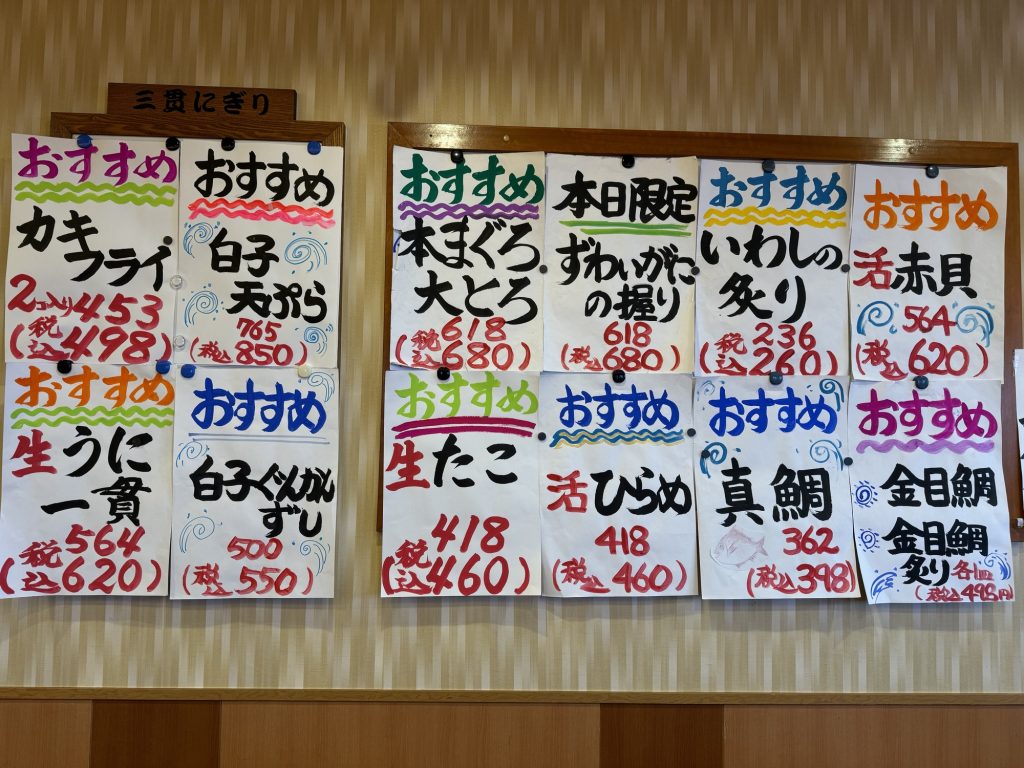 三貫にぎり
おすすめ
カキ
フライ
2コ入り453
(税込498)
おすすめ
白子
天ぷら
765
(税込850)
おすすめ
本まぐろ
大とろ
618
(税込680)
本日限定
ずわいがに
の握り
618
(税込680)
おすすめ
いわしの
炙り
236
(税込260)
おすすめ
活赤貝
564
(税込620)
おすすめ
生うに
一貫
564
(税込620)
おすすめ
白子ぐんかん
ずし
500
(税込550)
おすすめ
生たこ
418
(税込460)
おすすめ
活ひらめ
418
(税込460)
おすすめ
真鯛
362
(税込398)
おすすめ
金目鯛
金目鯛
炙り各1皿
(税込498円)